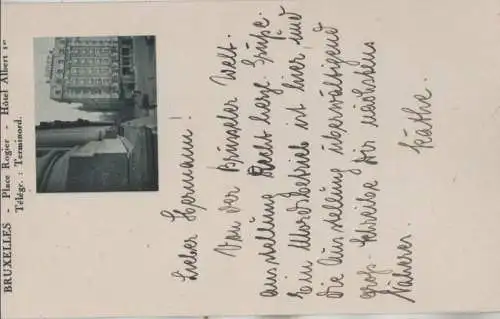 BRUXELLES - Place Rogier - Hôtel Albert 1er
Télégr. : Terminord.
Lieber Hermann!
Von der Brüsseler Welt-
ausstellung recht herzl. Grüße.
Ein Mordsbetrieb ist hier und
die Ausstellung überwältigend
groß. Schreibe Dir nächstens
Näheres.
Käthe.